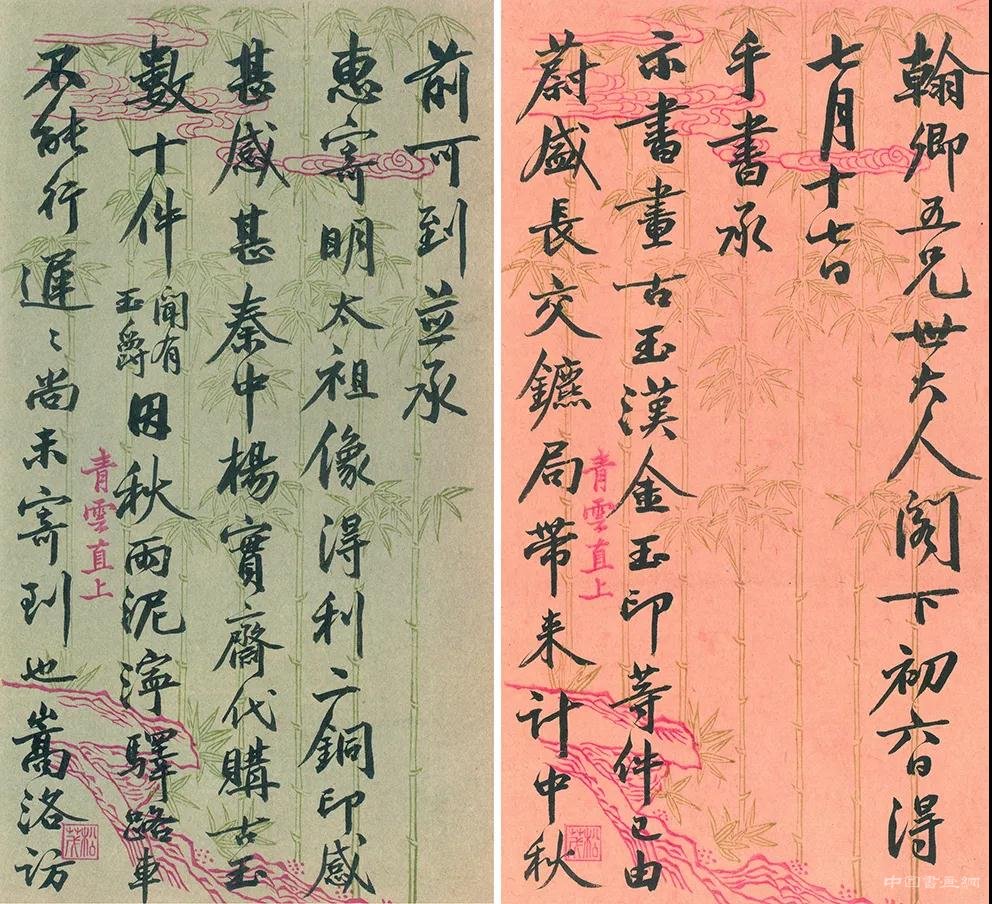 翰卿五兄世大人阁下初六日得
七月十七日
手書承
示書畫古玉漢金玉印等件已由
蔚盛長交鑣局帶来計中秋
前可到並承
惠寄明太祖像得利二銅印感
甚感甚秦中楊實齋代購古玉
數十件聞有玉爵因秋雨泥濘驛路車
不能行遲〻尚未寄到也嵩洛訪
青雲直上
青雲直上
松茂
松茂
中国書画網